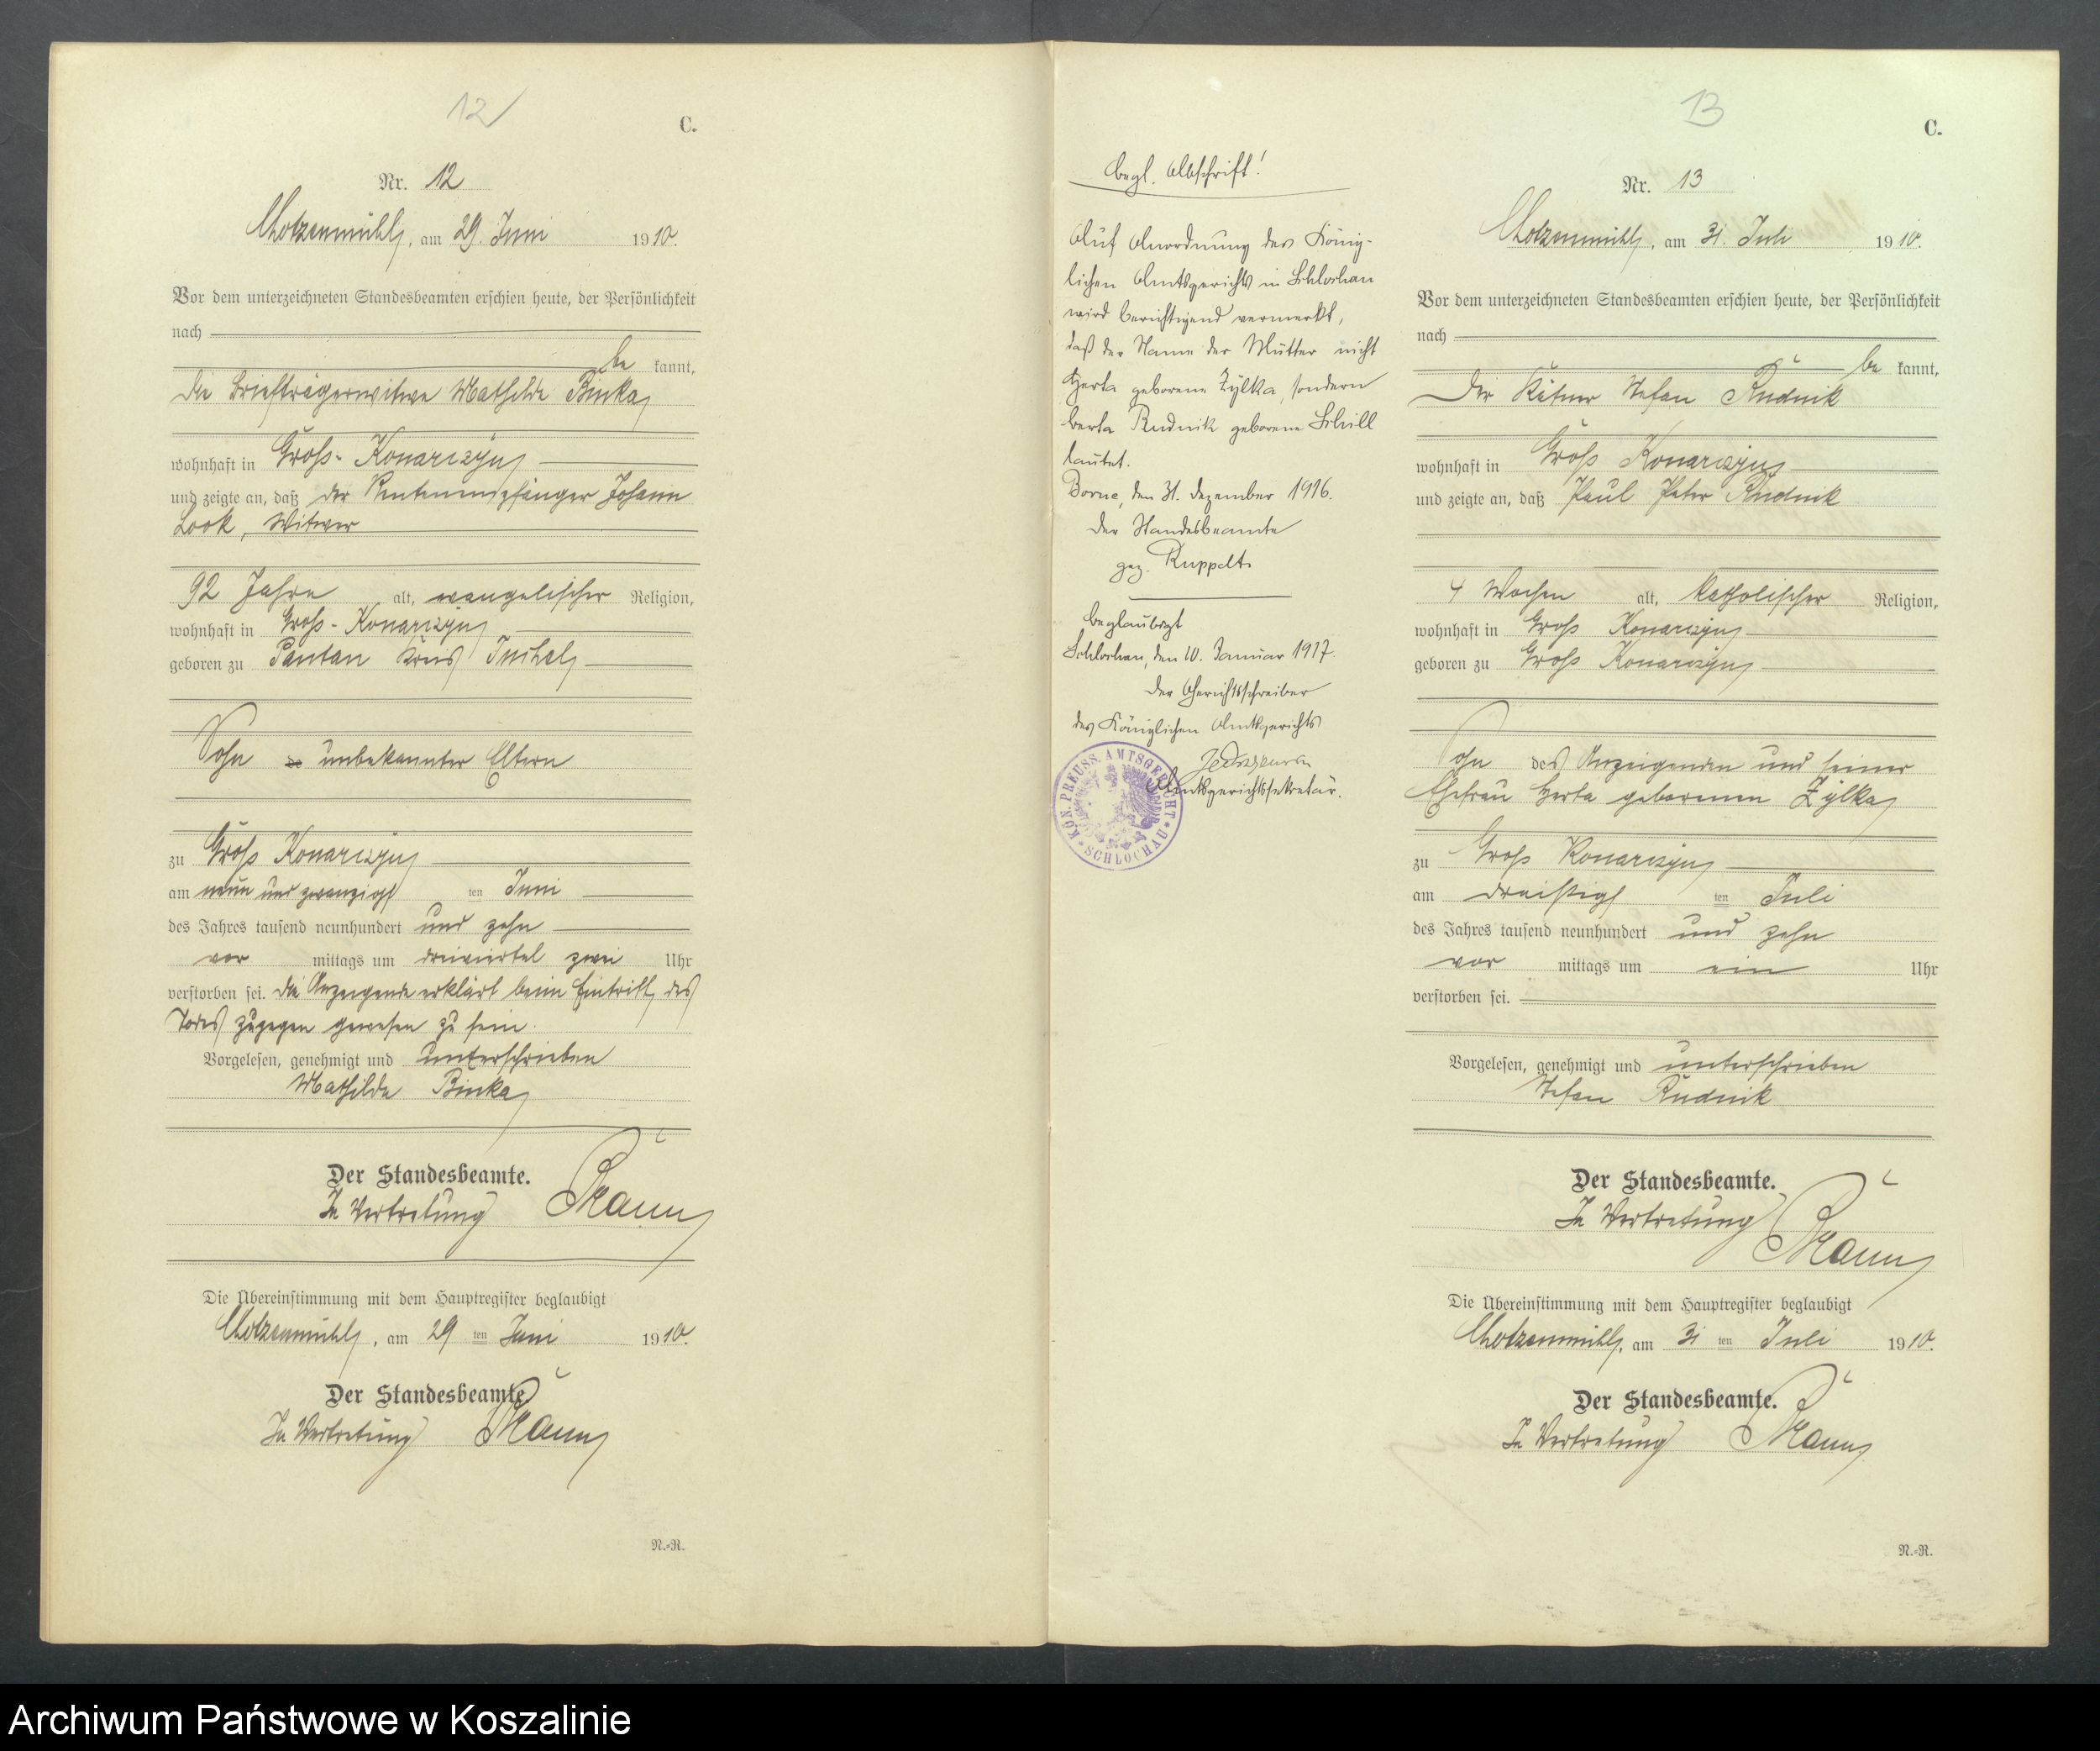 12
C.
Nr. 12
Chotzenmühl, am 29. Juni 1910.
Vor dem unterzeichneten Standesbeamten erschien heute, der Persönlichkeit
nach
be kannt,
die Briefträgerwitwe Mathilde Binka
wohnhaft in Groß-Konarczyn
und zeigte an, daß der Rentenempfänger Johann
Look, Witwer
92 Jahre alt, evangelischer Religion,
wohnhaft in Groß-Konarczyn
geboren zu Pantau Kreis Tuchel
Sohn unbekannter Eltern
zu Groß Konarczyn
am neun und zwanzigsten Juni
des Jahres tausend neunhundert und zehn
vor mittags um dreiviertel zwei Uhr
verstorben sei. Die Anzeigende erklärt beim Eintritt des
Todes zugegen gewesen zu sein.
Vorgelesen, genehmigt und unterschrieben
Mathilde Binka
Der Standesbeamte.
In Vertretung
Die Übereinstimmung mit dem Hauptregister beglaubigt
Chotzenmühl, am 29 ten Juni 1910.
Der Standesbeamte.
In Vertretung
N.-R.
13
C.
begl. Abschrift!
Auf Anordnung des König-
lichen Amtsgerichts in Schlochau
wird berichtigend vermerkt,
daß der Name der Mutter nicht
Herta geborene Zylka, sondern
berta Rudnik geborene Schill
lautet.
Borne, den 31. Dezember 1916.
Der Standesbeamte
gez. Ruppelt
beglaubigt
Schlochau, den 10. Januar 1917.
Der Gerichtsschreiber
des Königlichen Amtsgerichts
Amtsgerichtssekretär.
KÖN. PREUSS. AMTSGERICHT SCHLOCHAU
Nr. 13
Chotzenmühl, am 31. Juli 1910.
Vor dem unterzeichneten Standesbeamten erschien heute, der Persönlichkeit
nach
be kannt,
der Kätner Stefan Rudnik
wohnhaft in Groß Konarczyn
und zeigte an, daß Paul Peter Rudnik
4 Wochen alt, katholischer Religion,
wohnhaft in Groß Konarczyn
geboren zu Groß Konarczyn
Sohn des Anzeigenden und seiner
Ehefrau Herta geborenen Zylka
zu Groß Konarczyn
am dreißigsten Juli
des Jahres tausend neunhundert und zehn
vor mittags um ein Uhr
verstorben sei.
Vorgelesen, genehmigt und unterschrieben
Stefan Rudnik
Der Standesbeamte.
In Vertretung
Die Übereinstimmung mit dem Hauptregister beglaubigt
Chotzenmühl, am 31 ten Juli 1910.
Der Standesbeamte.
In Vertretung
N.-R.
Archiwum Państwowe w Koszalinie